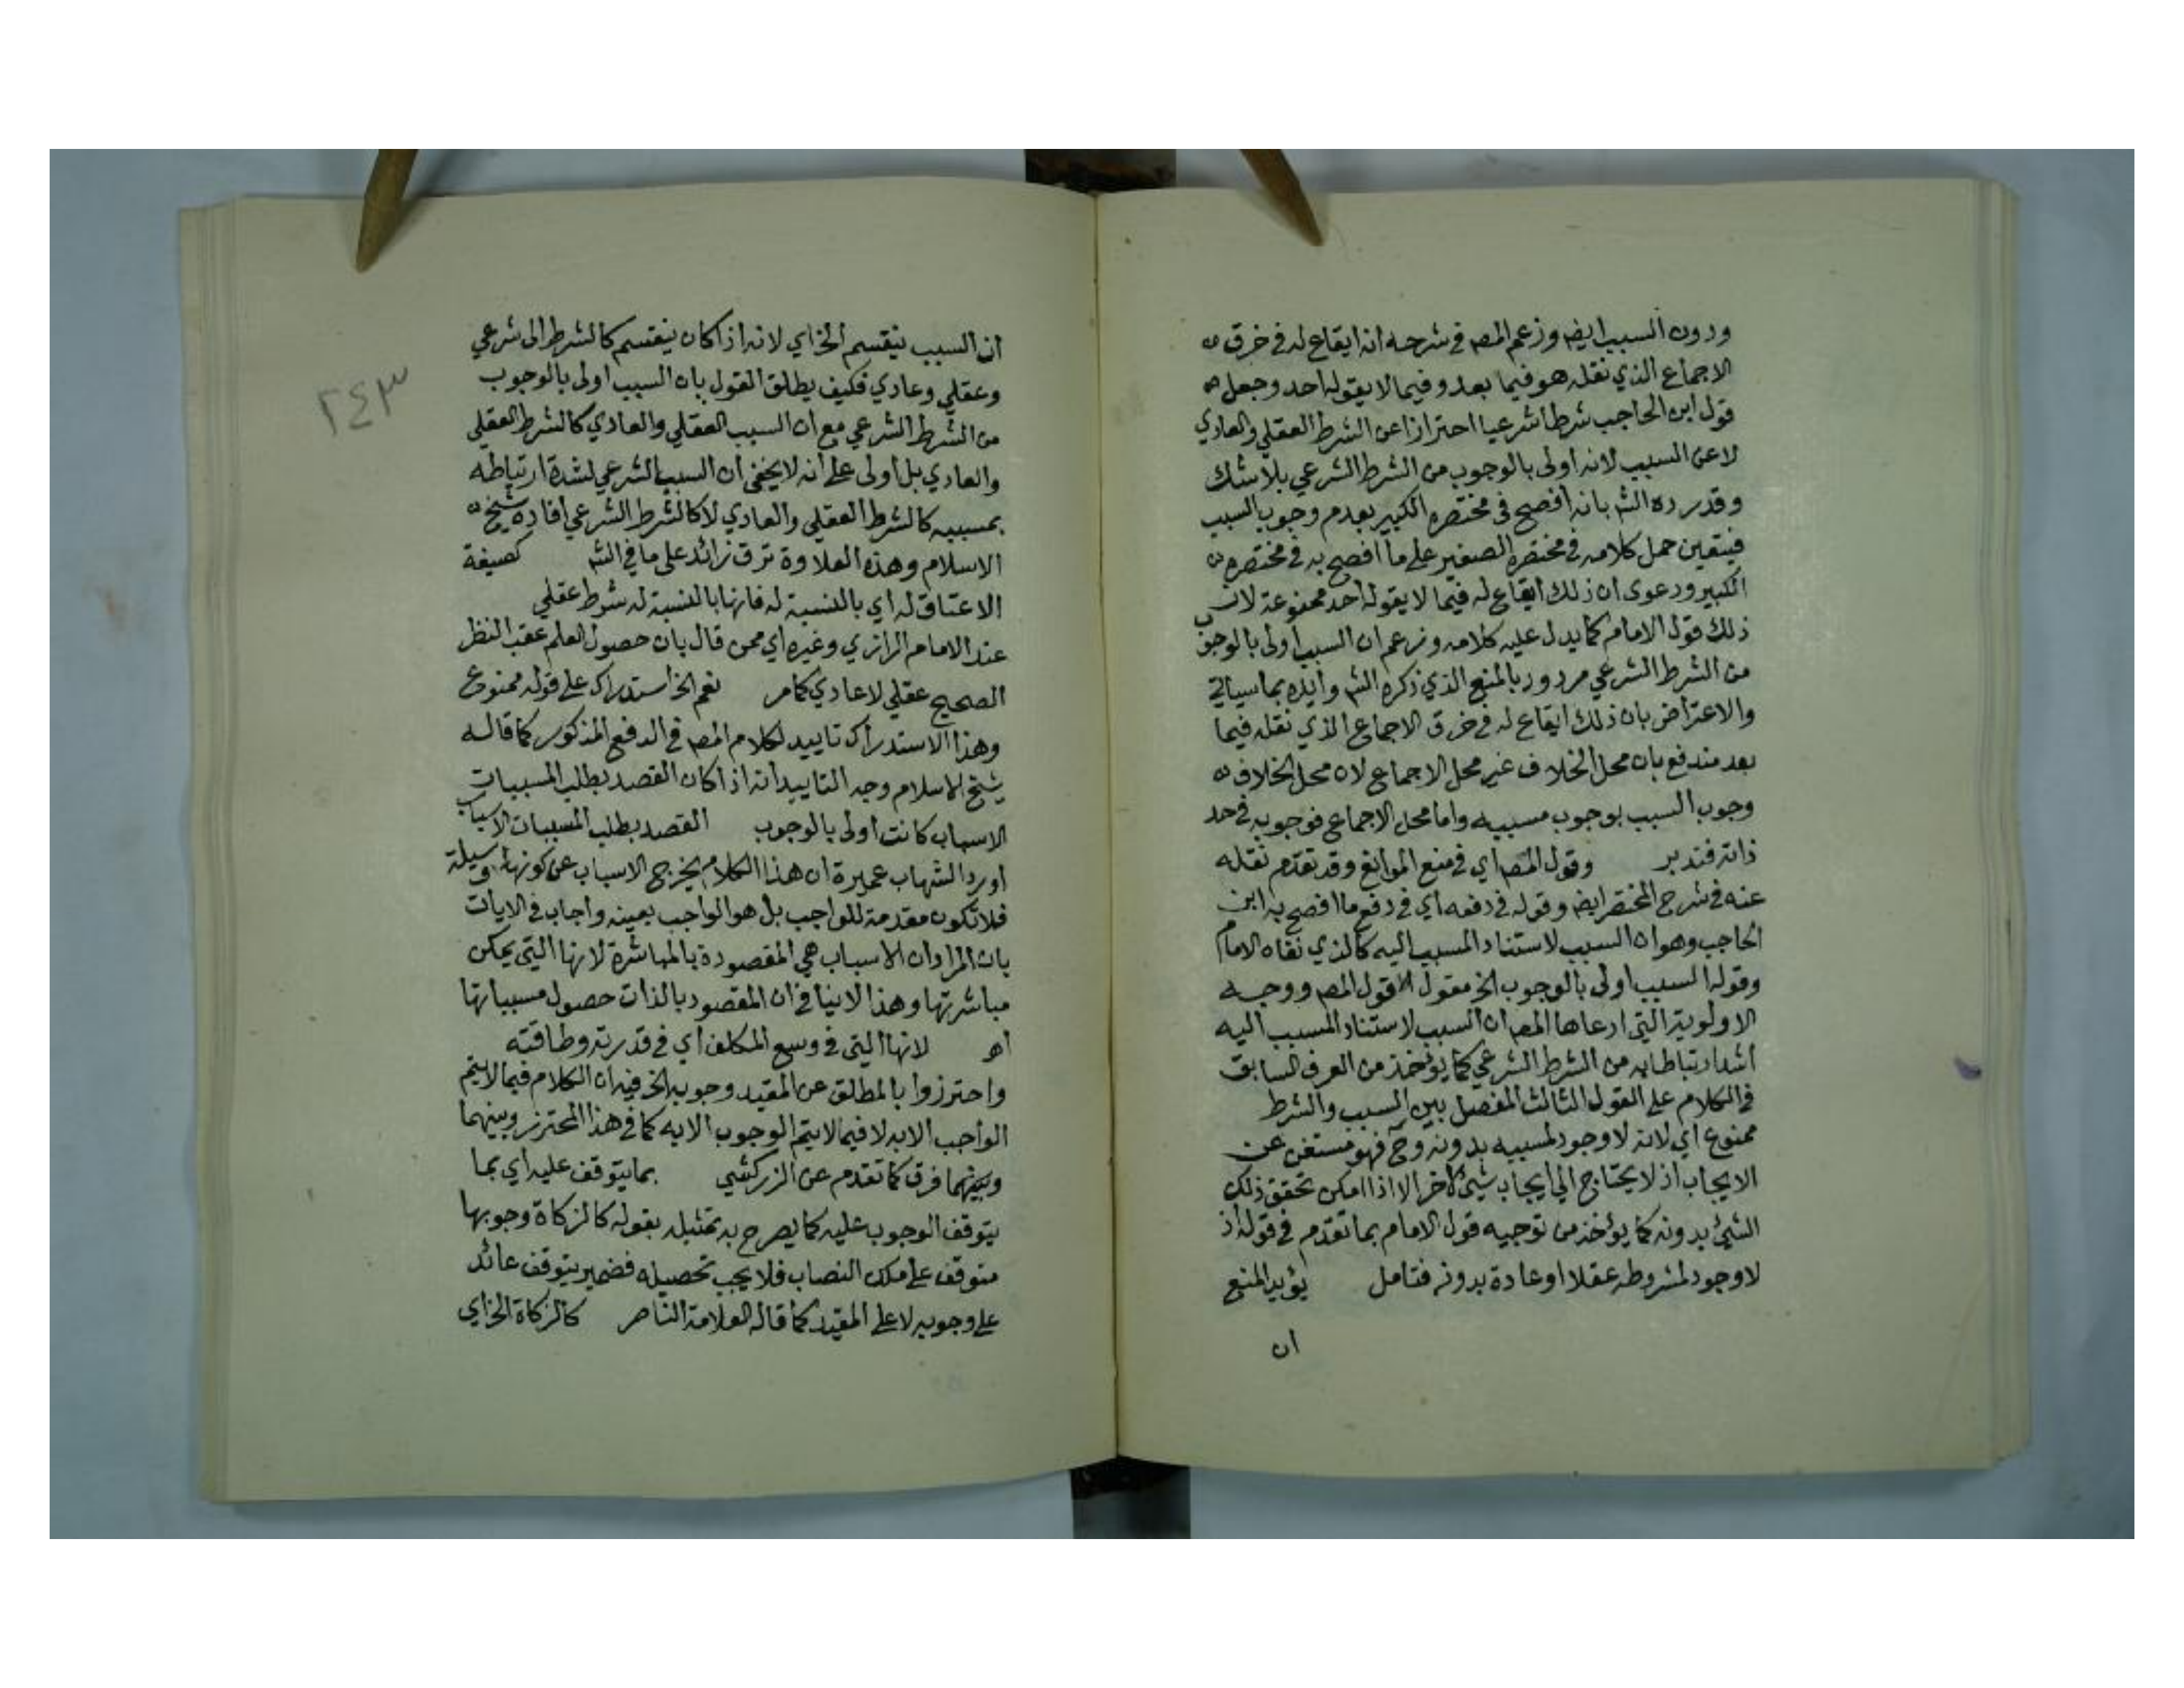 ودون السبب ايضا وزعم المصـ في شرحه انه ايقاع له في خرق
الاجماع الذي نقله هو فيما بعد وفيما لا يقوله احد وجعل
قول ابن الحاجب شرطا شرعيا احترازا عن الشرط العقلي والعادي
لا عن السبب لانه اولى بالوجوب من الشرط الشرعي بلا شك
وقد رده الشـ بانه افصح في مختصره الكبير بعدم وجوب السبب
فيتعين حمل كلامه في مختصره الصغير على ما افصح به في مختصره
الكبير ودعوى ان ذلك ايقاع له فيما لا يقوله احد ممنوعة لان
ذلك قول الامام كما يدل عليه كلامه وزعم ان السبب اولى بالوجوب
من الشرط الشرعي مردود بالمنع الذي ذكره الشـ وايده بما سياتي
والاعتراض بان ذلك ايقاع له في خرق الاجماع الذي نقله فيما
بعد مندفع بان محل الخلاف غير محل الاجماع لان محل الخلاف
وجوب السبب بوجوب مسببه واما محل الاجماع فوجوبه في حد
ذاته فتدبر وقول المصـ اي في منع الموانع وقد تقدم نقله
عنه في شرح المختصر ايضا وقوله في دفعه اي في دفع ما افصح به ابن
الحاجب وهو ان السبب لاستناد المسبب اليه كالذي نفاه الامام
وقوله السبب اولى بالوجوب الخ مقول لقول المصـ ووجه
الاولوية التي ادعاها المصـ ان السبب لاستناد المسبب اليه
اشد ارتباطا به من الشرط الشرعي كما يوخذ من الفرق السابق
في الكلام على القول الثالث المفصل بين السبب والشرط
ممنوع اي لانه لا وجود لمسببه بدونه وح فهو مستغن عن
الايجاب اذ لا يحتاج الى ايجاب شيئ لاخر الا اذا امكن تحقق ذلك
الشيئ بدونه كما يؤخذ من توجيه قول الامام بما تقدم في قوله اذ
لا وجود لمشروطه عقلا او عادة بدونه فتامل يؤيد المنع
ان
٢٤٣
ان السبب ينقسم الخ اي لانه اذا كان ينقسم كالشرط الى شرعي
وعقلي وعادي فكيف يطلق القول بان السبب اولى بالوجوب
من الشرط الشرعي مع ان السبب العقلي والعادي كالشرط العقلي
والعادي بل اولى على انه لا يخفى ان السبب الشرعي لشدة ارتباطه
بمسببه كالشرط العقلي والعادي لا كالشرط الشرعي افاده شيخ
الاسلام وهذه العلاوة ترق زائد على ما في الشـ كصيغة
الاعتاق له اي بالنسبة له فانها بالنسبة له شرط عقلي
عند الامام الرازي وغيره اي ممن قال بان حصول العلم عقب النظر
الصحيح عقلي لا عادي كما مر نعم الخ استدراك على قوله ممنوع
وهذا الاستدراك تاييد لكلام المصـ في الدفع المذكور كما قاله
شيخ الاسلام وجه التاييد انه اذا كان القصد بطلب المسببات
الاسباب كانت اولى بالوجوب القصد بطلب المسببات الاسباب
اورد الشهاب عميرة ان هذا الكلام يخرج الاسباب عن كونها وسيلة
فلا تكون مقدمة للواجب بل هو الواجب بعينه واجاب في الايات
بان المراد ان الاسباب هي المقصودة بالمباشرة لانها التي يمكن
مباشرتها وهذا لا ينافي ان المقصود بالذات حصول مسبباتها
اهـ لانها التي في وسع المكلف اي في قدرته وطاقته
واحترزوا بالمطلق عن المقيد وجوبه الخ فيه ان الكلام فيما لا يتم
الواجب الا به لا فيما لا يتم الوجوب الا به كما في هذا المحترز وبينهما
وبينهما فرق كما تقدم عن الزركشي بما يتوقف عليه اي بما
يتوقف الوجوب عليه كما يصرح به تمثيله بقوله كالزكاة وجوبها
متوقف على ملك النصاب فلا يجب تحصيله فضمير يتوقف عائد
على وجوبه لا على المقيد كما قاله العلامة الناصر كالزكاة الخ اي